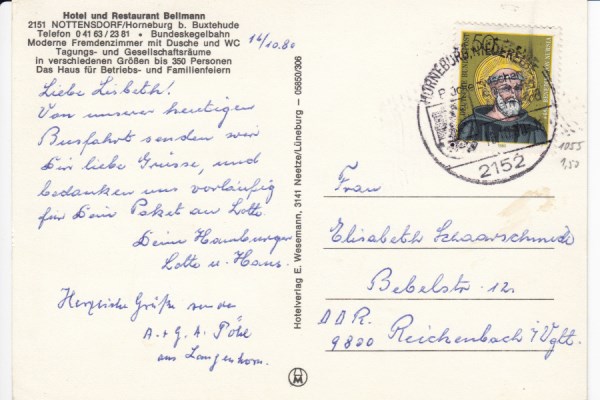 Hotel und Restaurant Bellmann
2151 NOTTENSDORF/Horneburg b. Buxtehude
Telefon 0 41 63 / 23 81 • Bundeskegelbahn
Moderne Fremdenzimmer mit Dusche und WC
Tagungs- und Gesellschaftsräume
in verschiedenen Größen bis 350 Personen
Das Haus für Betriebs- und Familienfeiern
14/10.80
Liebe Lisbeth!
Von unserer heutigen
Busfahrt senden wir
Dir liebe Grüsse, und
bedanken uns vorläufig
für Dein Paket an Lotte
Deine Hamburger
Lotte u. Hans.
Herzliche Grüße von
A. + G. A.
aus Langenhorn.
Hotelverlag E. Wesemann, 3141 Neetze/Lüneburg — 05650/906
HORNEBURG, NIEDERELBE
2152
50
DEUTSCHE BUNDESPOST
1055
1,50
Frau
Elisabeth Schaarschmidt
Bebelstr. 12.
DDR.
9800 Reichenbach i/Vgtl.